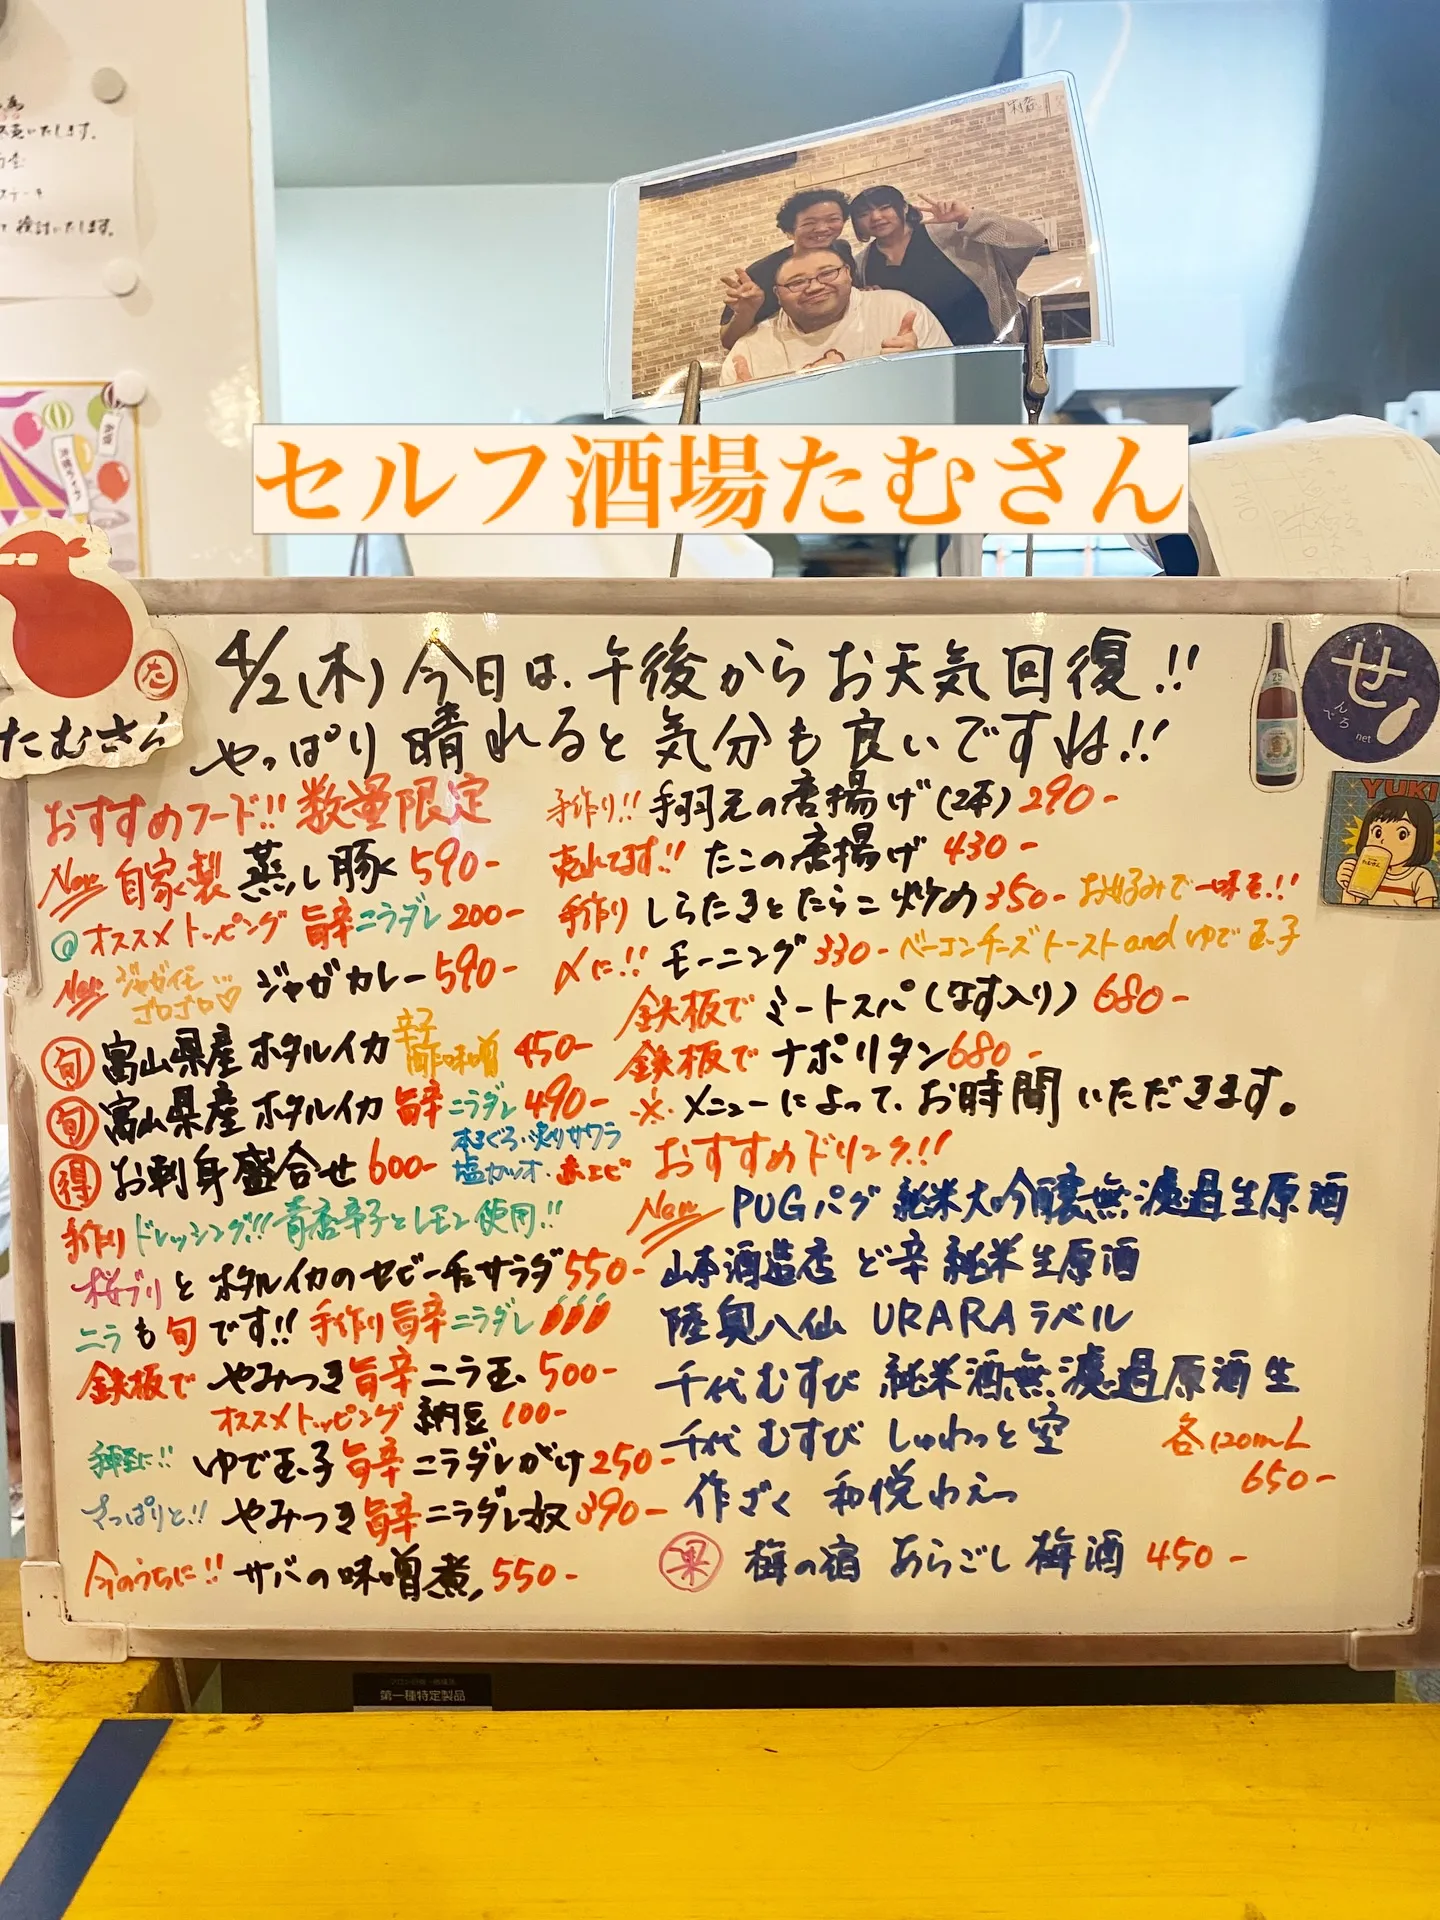 売いたします。
ステーキ
検討いたします。
セルフ酒場たむさん
たむさん
4/2(木) 今日は、午後からお天気回復!!
やっぱり晴れると気分も良いですね!!
せ
んべろ
net
25
YUKI
おすすめフード!! 数量限定
New 自家製 蒸し豚 590-
◎オススメトッピング 旨辛ニラダレ 200-
New ジャガイモゴロゴロ♡ ジャガカレー 590-
旬 富山県産 ホタルイカ 辛子酢味噌 450-
旬 富山県産 ホタルイカ 旨辛ニラダレ 490-
得 お刺身盛合せ 600- 本まぐろ・炙りサワラ
塩カツオ・赤エビ
手作りドレッシング!! 青唐辛子とレモン使用!!
桜ブリとホタルイカのセビーチェサラダ 550-
ニラも旬です!! 手作り旨辛ニラダレ
鉄板で やみつき旨辛ニラ玉 500-
オススメトッピング 納豆 100-
手軽に!! ゆで玉子旨辛ニラダレがけ 250-
さっぱりと!! やみつき旨辛ニラダレ奴 390-
今のうちに!! サバの味噌煮 550-
手作り!! 手羽元の唐揚げ(2本) 290-
売れてます!! たこの唐揚げ 430-
手作り しらたきとたらこ炒め 350- お好みで一味を!!
〆に!! モーニング 330- ベーコンチーズトースト and ゆで玉子
鉄板で ミートスパ(なす入り) 680-
鉄板で ナポリタン 680-
※メニューによって、お時間いただきます。
おすすめドリンク!!
New PUGパグ 純米大吟醸無濾過生原酒
山本酒造店 ど辛 純米生原酒
陸奥八仙 URARAラベル
千代むすび 純米酒無濾過原酒生
千代むすび しゅわっと空
作ざく 和悦わえつ
各120mL
650-
果 梅の宿 あらごし梅酒 450-
第一種特定製品